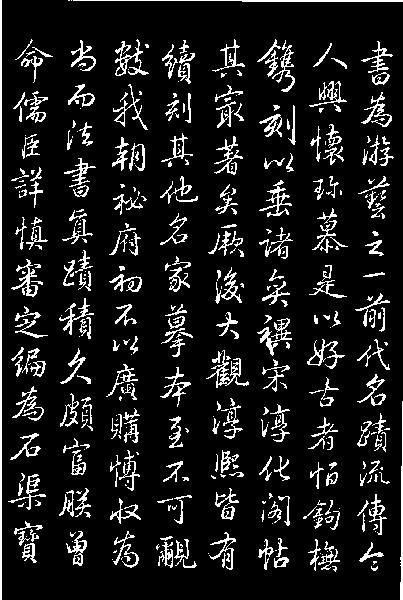 書為游藝之一前代名蹟流傳令
人興懷珎慕是以好古者恒鉤橅
鐫刻以垂諸奕禩宋淳化閣帖
其冣著矣厥後大觀淳熙皆有
續刻其他名家摹本至不可覼
數我朝祕府初不以廣購博收為
尚而法書真蹟積久頗富朕曾
命儒臣詳慎審定編為石渠寶